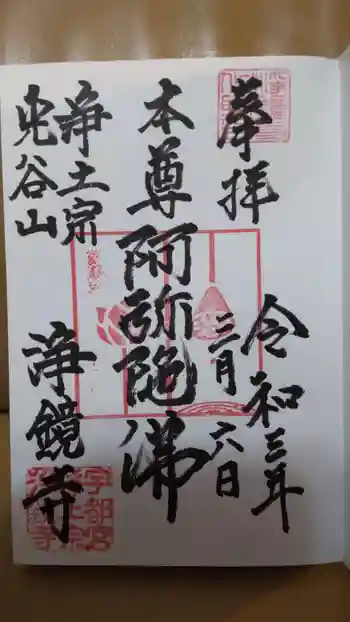 奉拝
令和三年
三月六日
本尊阿弥陀佛
浄土宗
光谷山
浄鏡寺
宇都宮
浄土宗
浄鏡寺